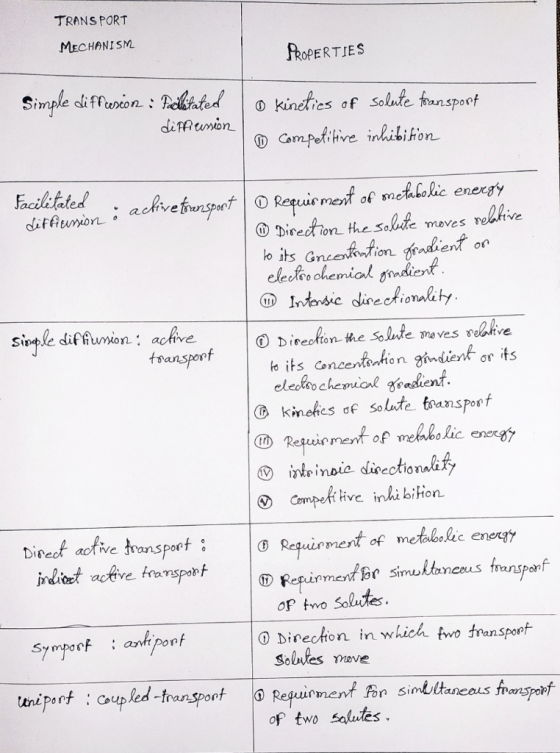 TRANSPORT
MECHANISM
PROPERTIES
Simple diffusion : Facilitated
diffusion
(i) Kinetics of solute transport
(ii) Competitive inhibition
Facilitated
diffusion : active transport
(i) Requirment of metabolic energy
(ii) Direction the solute moves relative
to its concentration gradient or
electrochemical gradient.
(iii) Intensic directionality.
Simple diffusion : active
transport
(i) Direction the solute moves relative
to its concentration gradient or its
electrochemical gradient.
(ii) Kinetics of solute transport
(iii) Requirment of metabolic energy
(iv) intrinsic directionality
(v) Competitive inhibition
Direct active transport :
indirect active transport
(i) Requirment of metabolic energy
(ii) Requirment for simultaneous transport
of two solutes.
Symport : antiport
(i) Direction in which two transport
solutes move
Uniport : coupled-transport
(i) Requirment for simultaneous transport
of two solutes.